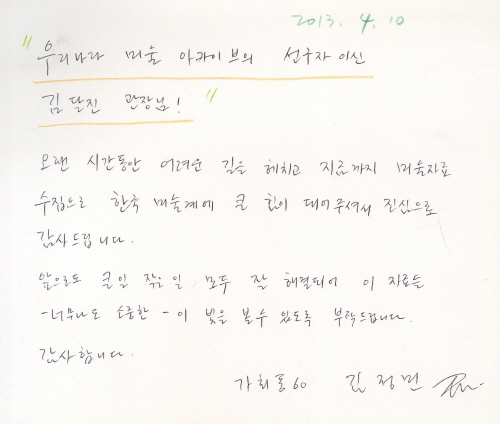 2013. 4. 10
"우리나라 미술 아카이브의 선구자이신
김달진 관장님! "
오랜 시간동안 어려운 길을 헤치고 지금까지 미술자료
수집으로 한국 미술계에 큰 힘이 되어주셔서 진심으로
감사드립니다.
앞으로도 큰일 작은일 모두 잘 해결되어 이 자료들
-너무나도 소중한- 이 빛을 볼 수 있도록 부탁드립니다.
감사합니다.
가회동60 김정민